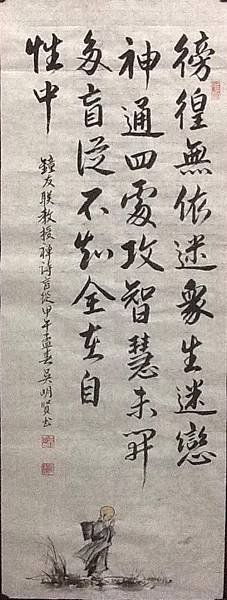 徬徨無依迷眾生迷戀
神通四處攻智慧未開
多盲從不知全在自
性中
鐘友联教授禅詩盲從甲午孟春吳明賢書